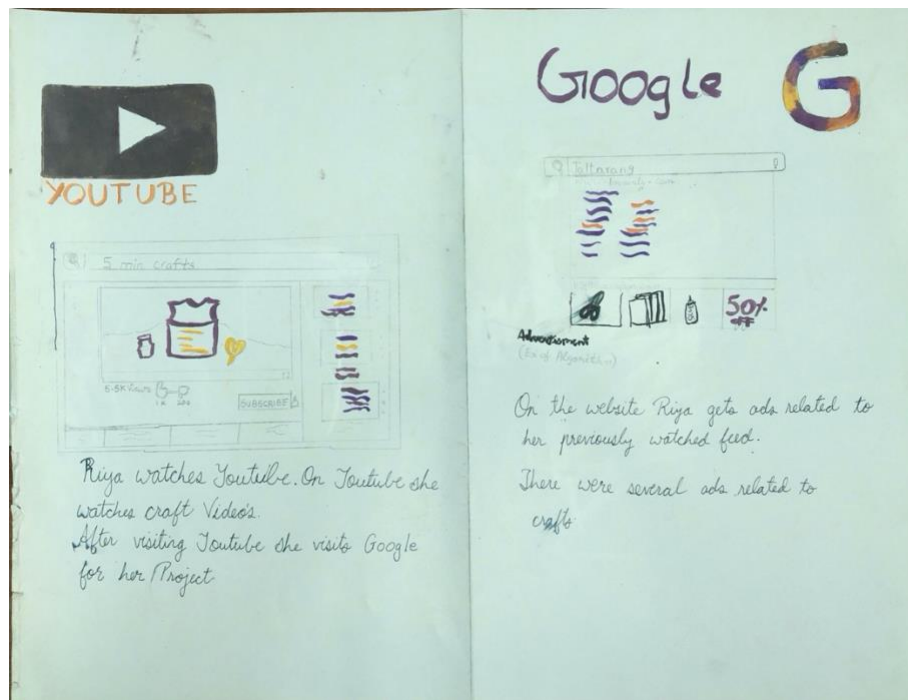 YOUTUBE
5 min crafts
5.5K Views
SUBSCRIBE
Riya watches Youtube. On Youtube she
watches craft Video's.
After visiting Youtube she visits Google
for her Project
Google
G
Jaltarang
50%
off
Advertisment
(Ex of Algorithm)
On the website Riya gets ads related to
her previously watched feed.
There were several ads related to
crafts